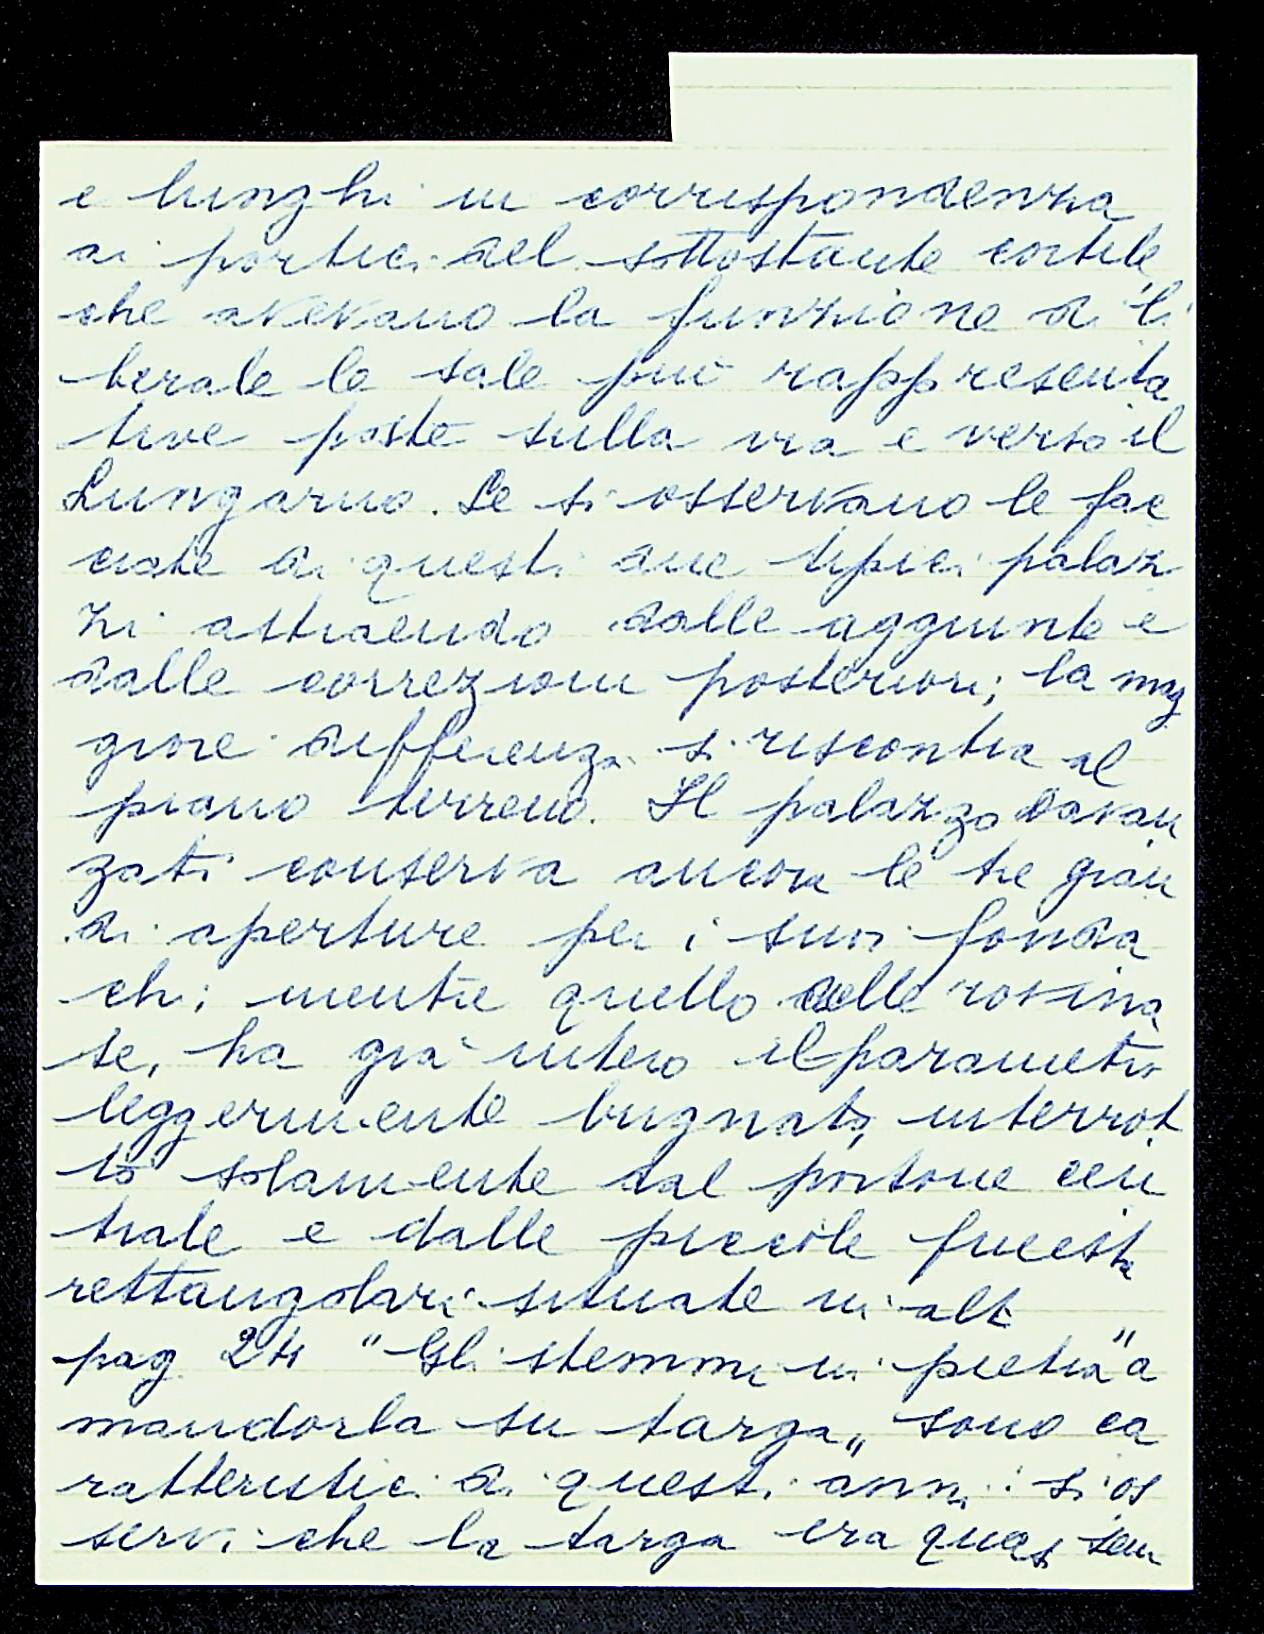 e lunghi in corrispondenza
ai portici del sottostante cortile
che avevano la funzione di li
berale le sale più rappresenta
tive poste sulla via e verso il
Lungarno. Se si osservano le fac
ciate di questi due tipici palaz
zi astraendo dalle aggiunte e
dalle correzioni posteriori; la mag
giore differenza si riscontra al
piano terreno. Il palazzo Davan
zati conserva ancora le tre gran
di aperture per i suoi fonda
chi; mentre quello delle rovina
te, ha già intero il parametro
leggermente bugnato, interrot
to solamente dal portone cen
trale e dalle piccole finestre
rettangolari situate in alto
pag "Gli stemmi in pietra" a
mandorla su targa" sono ca
ratteristici di questi anni: si os
servi che la targa era quasi sem